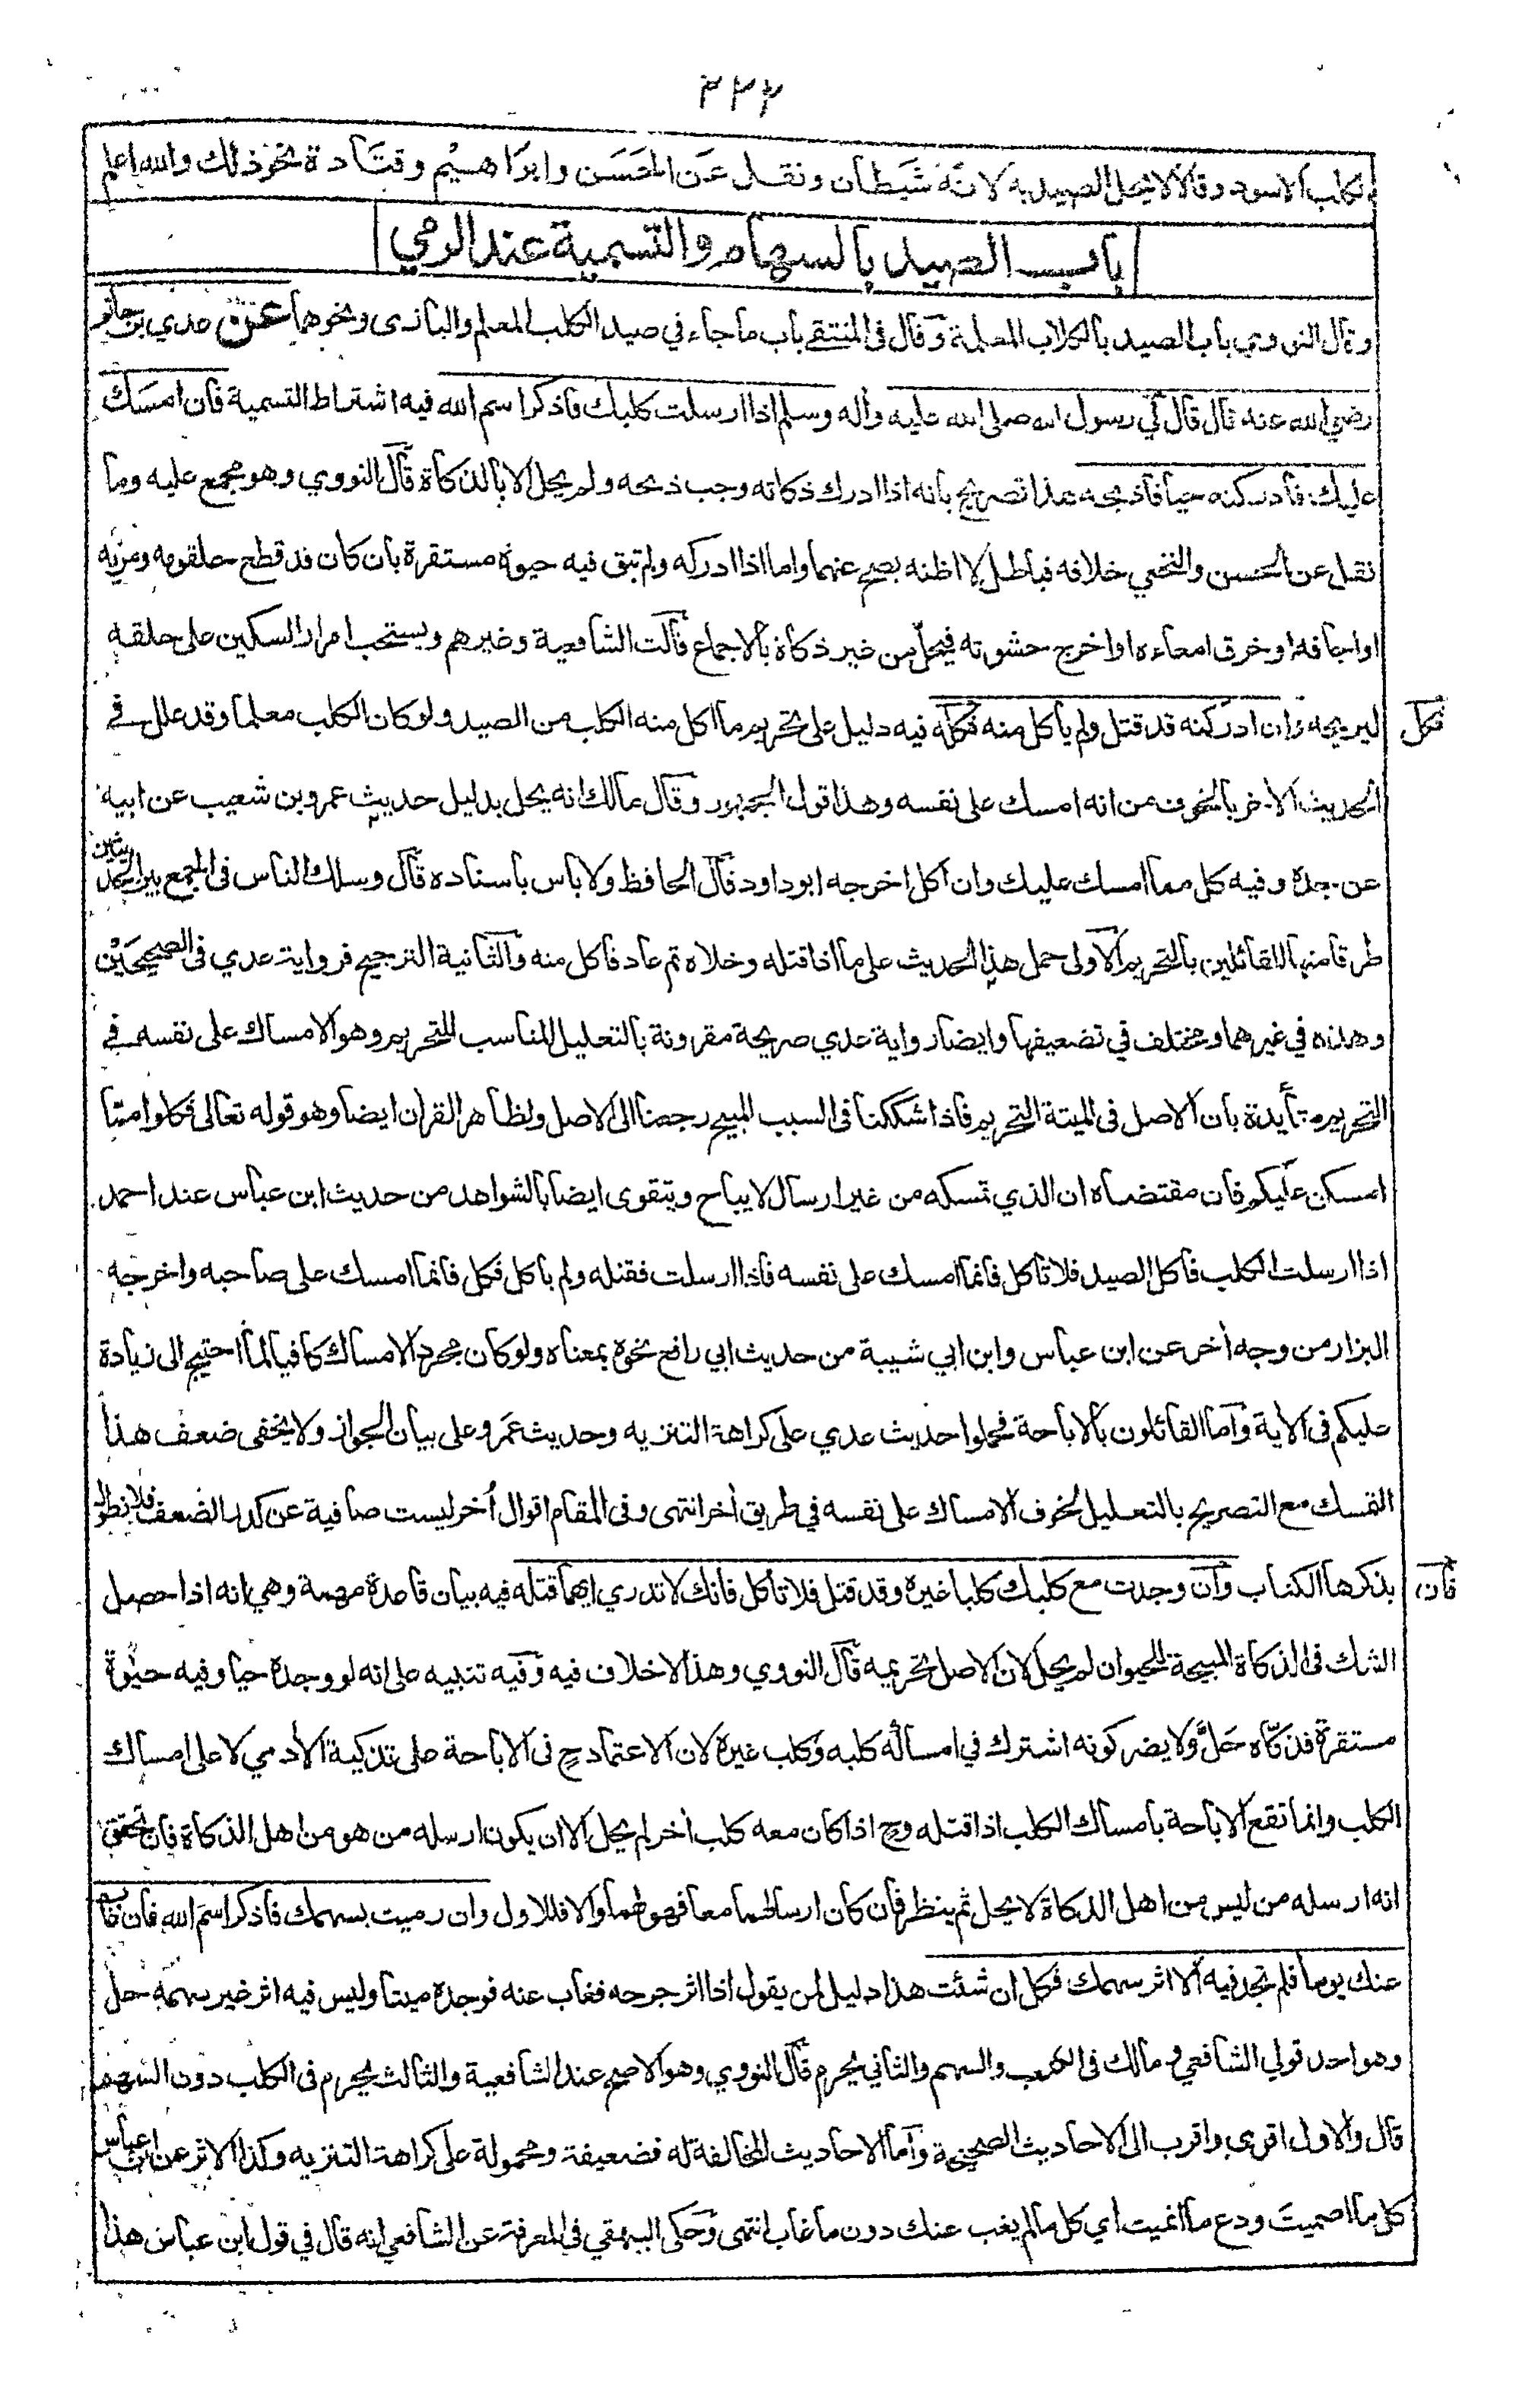 ٣٣٢
الكلب الاسود وقالا لا يحل الصيد به لانه شَيطان ونقل عَن الحَسَن وابرَاهيْم وقتَادة نحو ذلك والله اعلم
باب الصيد بالسهام والتسمية عند الرمي
وقال النووي باب الصيد بالكلاب المعلمة وقال في المنتقى باب ما جاء في صيد الكلب المعلم والبازى ونحوهما عن عدي بن حاتم
رضي الله عنه قال قال لي رسول الله صلى الله عليه وأله وسلم اذا ارسلت كلبك فاذكر اسم الله فيه اشتراط التسمية فان امسَك
عليك فادركته حيا فاذبحه هذا تصريح بانه اذا ادرك ذكاته وجب ذبحه ولم يحل الا بالذكاة قال النووي وهو مجمع عليه وما
نقل عن الحسن والنخعي خلافه فباطل لا اظنه يصح عنهما واما اذا ادركه ولم تبق فيه حيوة مستقرة بان كان قد قطع حلقومه ومريه
او اجافه او خرق امعاءه او اخرج حشوته فيحل من غير ذكاة بالاجماع قالت الشافعية وغيرهم ويستحب امرار السكين على حلقه
ليريحه وان ادركته قد قتل ولم يأكل منه فكله فيه دليل على تحريم ما اكل منه الكلب من الصيد ولو كان الكلب معلما وقد علل في
فكل
الحديث الاخر بالخوف من انه امسك على نفسه وهذا قول الجمهور وقال مالك انه يحل بدليل حديث عمرو بن شعيب عن ابيه
عن جده وفيه كل مما امسك عليك وان اكل اخرجه ابو داود قال الحافظ ولا باس باسناده قال وسلك الناس في الجمع بين الحديثين
طرقا منها للقائلين بالتحريم الاولى حمل هذا الحديث على ما اذا قتله وخلاه ثم عاد فاكل منه والثانية الترجيح فرواية عدي في الصحيحَيْن
وهذه في غيرهما ومختلف في تضعيفها وايضا رواية عدي صريحة مقرونة بالتعليل المناسب للتحريم وهو الامساك على نفسه في
التحريم متأيدة بان الاصل في الميتة التحريم فاذا شككنا في السبب المبيح رجعنا الى الاصل ولظاهر القران ايضا وهو قوله تعالى فكلوا ممّا
امسكن عليكم فان مقتضاه ان الذي تمسكه من غير ارسال لا يباح ويتقوى ايضا بالشواهد من حديث ابن عباس عند احمد
اذا ارسلت الكلب فاكل الصيد فلا تاكل فانما امسك على نفسه فاذا ارسلت فقتله ولم ياكل فكل فانما امسك على صاحبه واخرجه
البزار من وجه أخر عن ابن عباس وابن ابي شيبة من حديث ابي رافع نحوه بمعناه ولو كان مجرد الامساك كافيا لما احتيج الى زيادة
عليكم في الاية واما القائلون بالاباحة فحملوا حديث عدي على كراهة التنزيه وحديث عمرو على بيان الجواز ولا يخفى ضعف هذا
التمسك مع التصريح بالتعليل لخوف الامساك على نفسه في طريق أخر انتهى وفي المقام اقوال أخر ليست صافية عن كدر الضعف فلا نطول
بذكرها الكتاب وان وجدت مع كلبك كلبا غيره وقد قتل فلا تأكل فانك لا تدري ايهما قتله فيه بيان قاعدة مهمة وهي انه اذا حصل
فان
الشك في الذكاة المبيحة للحيوان لم يحل لان الاصل تحريمه قال النووي وهذا لا خلاف فيه وفيه تنبيه على انه لو وجده حيا وفيه حيٰوة
مستقرة فذكّاه حَلَّ ولا يضر كونه اشترك في امساكه كلبه وكلب غيره لان الاعتماد ح في الاباحة على تذكية الأدمي لا على امساك
الكلب وانما تقع الاباحة بامساك الكلب اذا قتله وح اذا كان معه كلب أخر لم يحل الا ان يكون ارسله من هو من اهل الذكاة فان تحقق
انه ارسله من ليس من اهل الذكاة لا يحل ثم ينظر فان كان ارسالهما معا فهو لهما والا فللاول وان رميت بسهمك فاذكر اسم الله فان غاب
عنك يوما فلم تجد فيه الا اثر سهمك فكل ان شئت هذا دليل لمن يقول اذا اثر جرحه فغاب عنه فوجده ميتا وليس فيه اثر غير سهمه حل
وهو احد قولي الشافعي ومالك في الكلب والسهم والثاني يحرم قال النووي وهو الاصح عند الشافعية والثالث يحرم في الكلب دون السهم
قال والاول اقوى واقرب الى الاحاديث الصحيحة واما الاحاديث المخالفة له فضعيفة ومحمولة على كراهة التنزيه وكذا الاثر عن ابن عباس
كل ما اصميت ودع ما انميت اي كل ما لم يغب عنك دون ما غاب انتهى وحكى البيهقي في المعرفة عن الشافعي انه قال في قول ابن عباس هذا